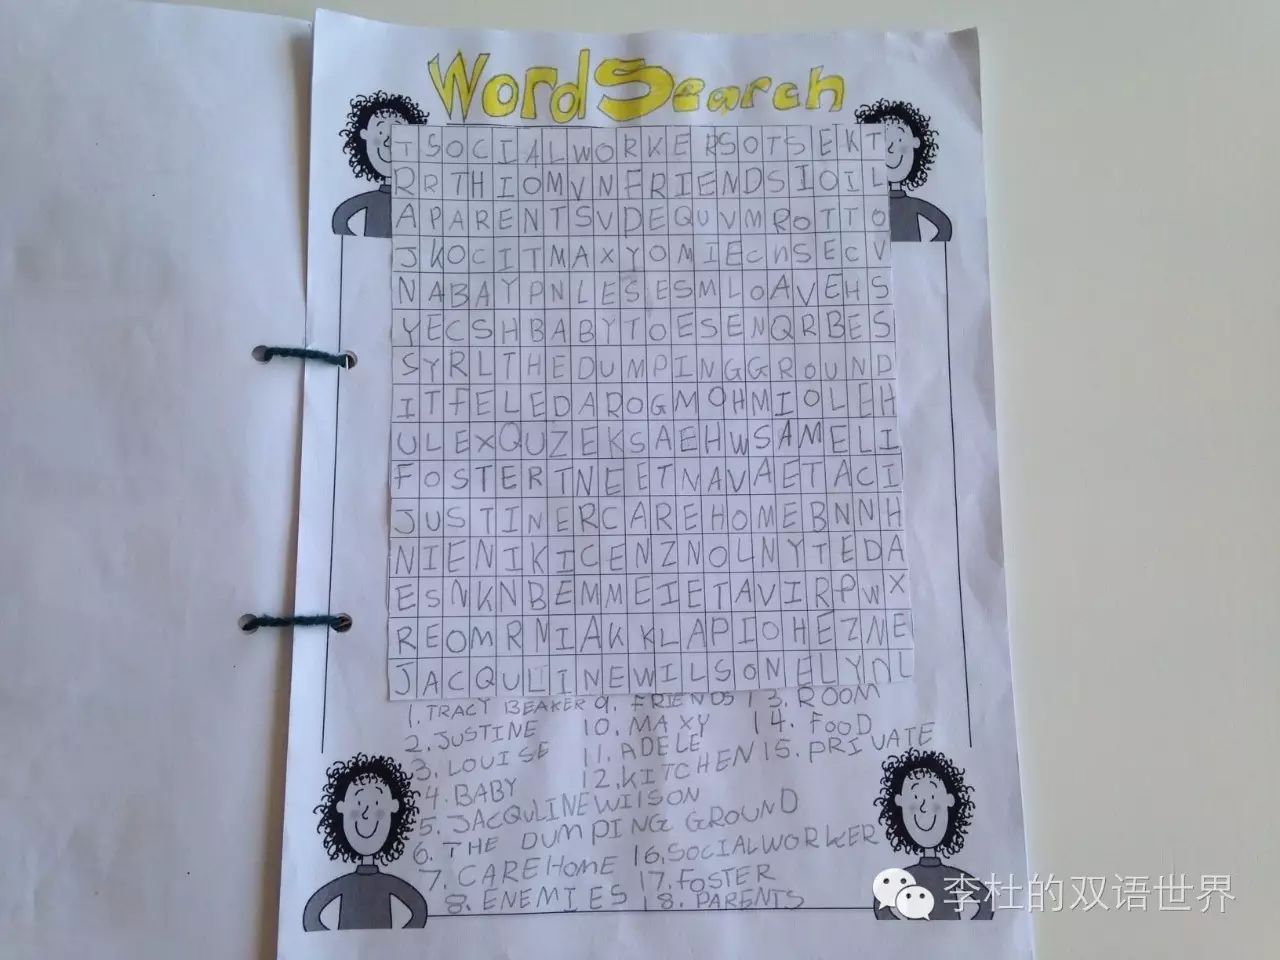 Word Search
TSOCIALWORKERSOTSEKT
RRTHIOMVNFRIENDSIOIL
APARENTSVDEQUVMROTTO
JKOCITMAXYOMIECNSECV
NABAYPNLESESMLOAVEHS
YECSHBABYTOESENQRBES
SYRLTHEDUMPINGGROUND
ITFELEDAROGMOHMIOLEH
ULEXQUZEKSAEHWSAMELI
FOSTERTNEETNAVAETACI
JUSTINERCAREHOMEBNNH
NIENIKICENZNOLNYTEDA
ESNKNBEMMEIETAVIRPWX
REOMRNIAKKLAPIOHEZME
JACQULINEWILSONELYNL
1. TRACY BEAKER 9. FRIENDS 13. ROOM
2. JUSTINE 10. MAXY 14. FOOD
3. LOUISE 11. ADELE 15. PRIVATE
4. BABY 12. KITCHEN
5. JACQULINE WILSON
6. THE DUMPING GROUND
7. CARE HOME 16. SOCIALWORKER
8. ENEMIES 17. FOSTER
18. PARENTS
李杜的双语世界